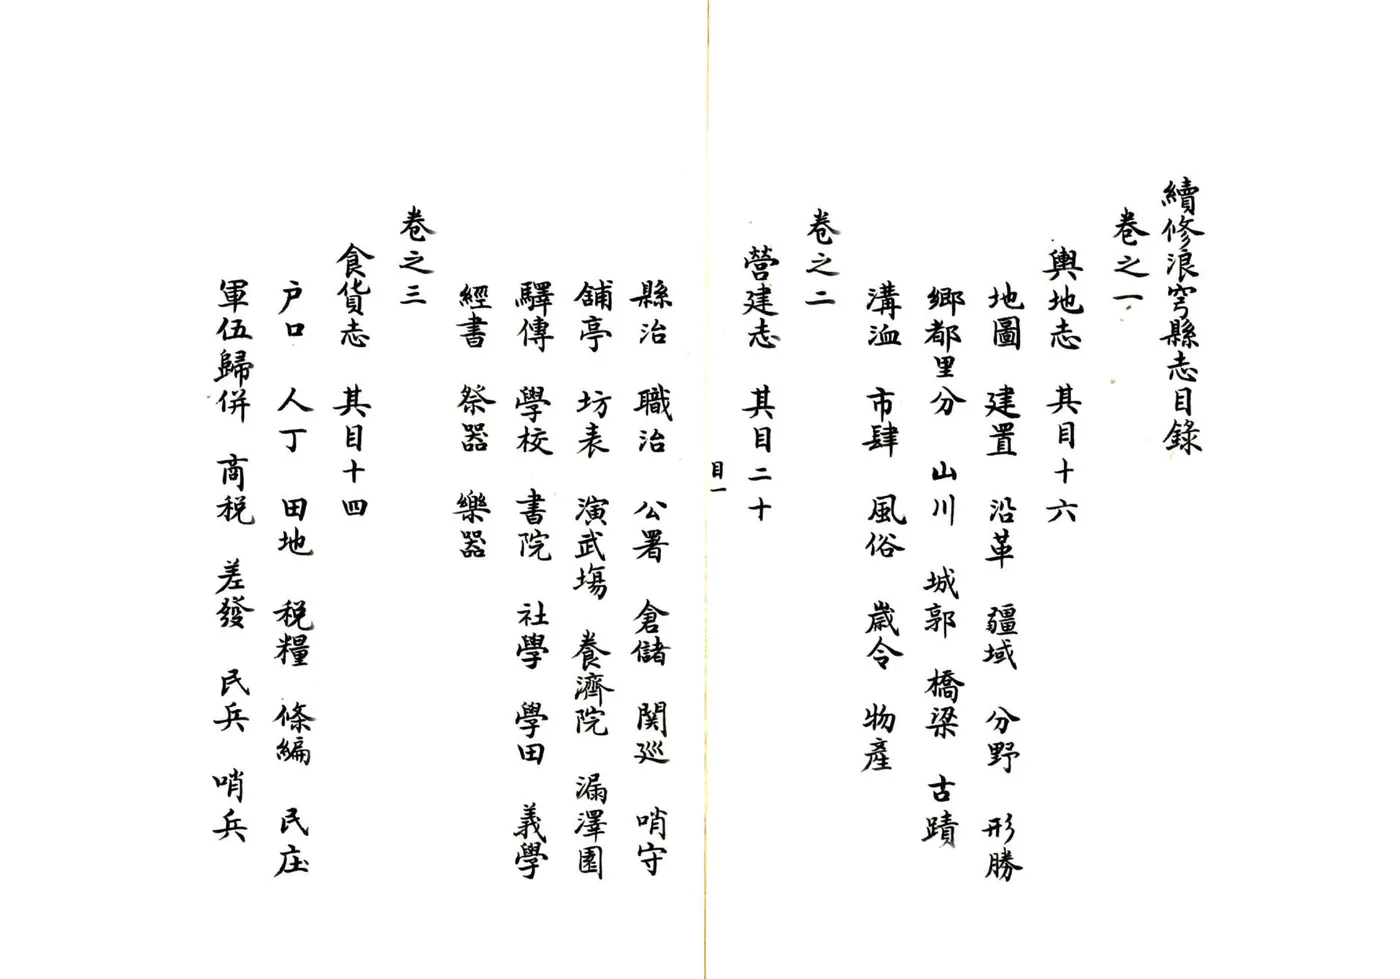 續修浪穹縣志目錄
卷之一
輿地志 其目十六
地圖 建置 沿革 疆域 分野 形勝
鄉都里分 山川 城郭 橋梁 古蹟
溝洫 市肆 風俗 歲令 物產
卷之二
營建志 其目二十
目一
縣治 職治 公署 倉儲 関巡 哨守
舖亭 坊表 演武塲 養濟院 漏澤園
驛傳 學校 書院 社學 學田 義學
經書 祭器 樂器
卷之三
食貨志 其目十四
户口 人丁 田地 税糧 條編 民庄
軍伍歸併 商税 差發 民兵 哨兵